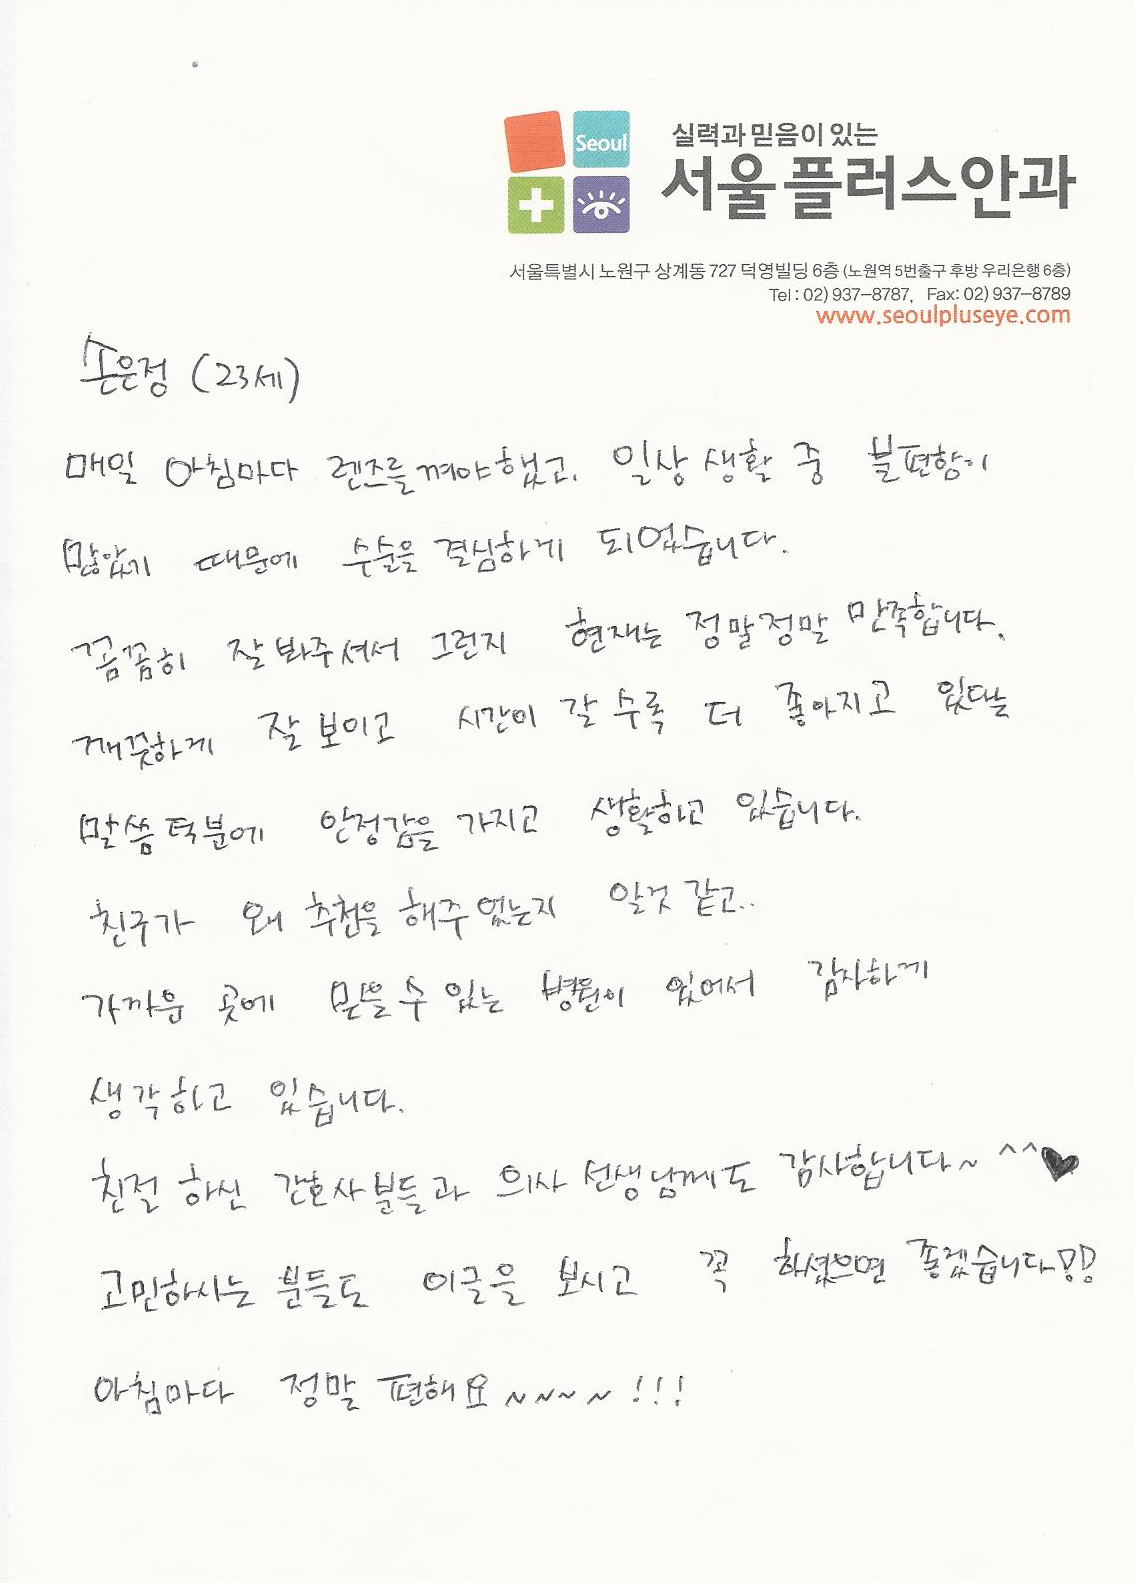 Seoul
실력과 믿음이 있는
서울플러스안과
서울특별시 노원구 상계동 727 덕영빌딩 6층 (노원역 5번출구 후방 우리은행 6층)
Tel : 02) 937-8787, Fax: 02) 937-8789
www.seoulpluseye.com
손은정 (23세)
매일 아침마다 렌즈를 껴야했고, 일상생활 중 불편함이
많았기 때문에 수술을 결심하게 되었습니다.
꼼꼼히 잘 봐주셔서 그런지 현재는 정말정말 만족합니다.
깨끗하게 잘 보이고 시간이 갈수록 더 좋아지고 있다는
말씀 덕분에 안정감을 가지고 생활하고 있습니다.
친구가 왜 추천을 해주었는지 알것 같고..
가까운 곳에 믿을 수 있는 병원이 있어서 감사하게
생각하고 있습니다.
친절 하신 간호사분들과 의사 선생님께도 감사합니다~ ^^♥
고민하시는 분들도 이글을 보시고 꼭 하셨으면 좋겠습니다!!
아침마다 정말 편해요~~~~!!!